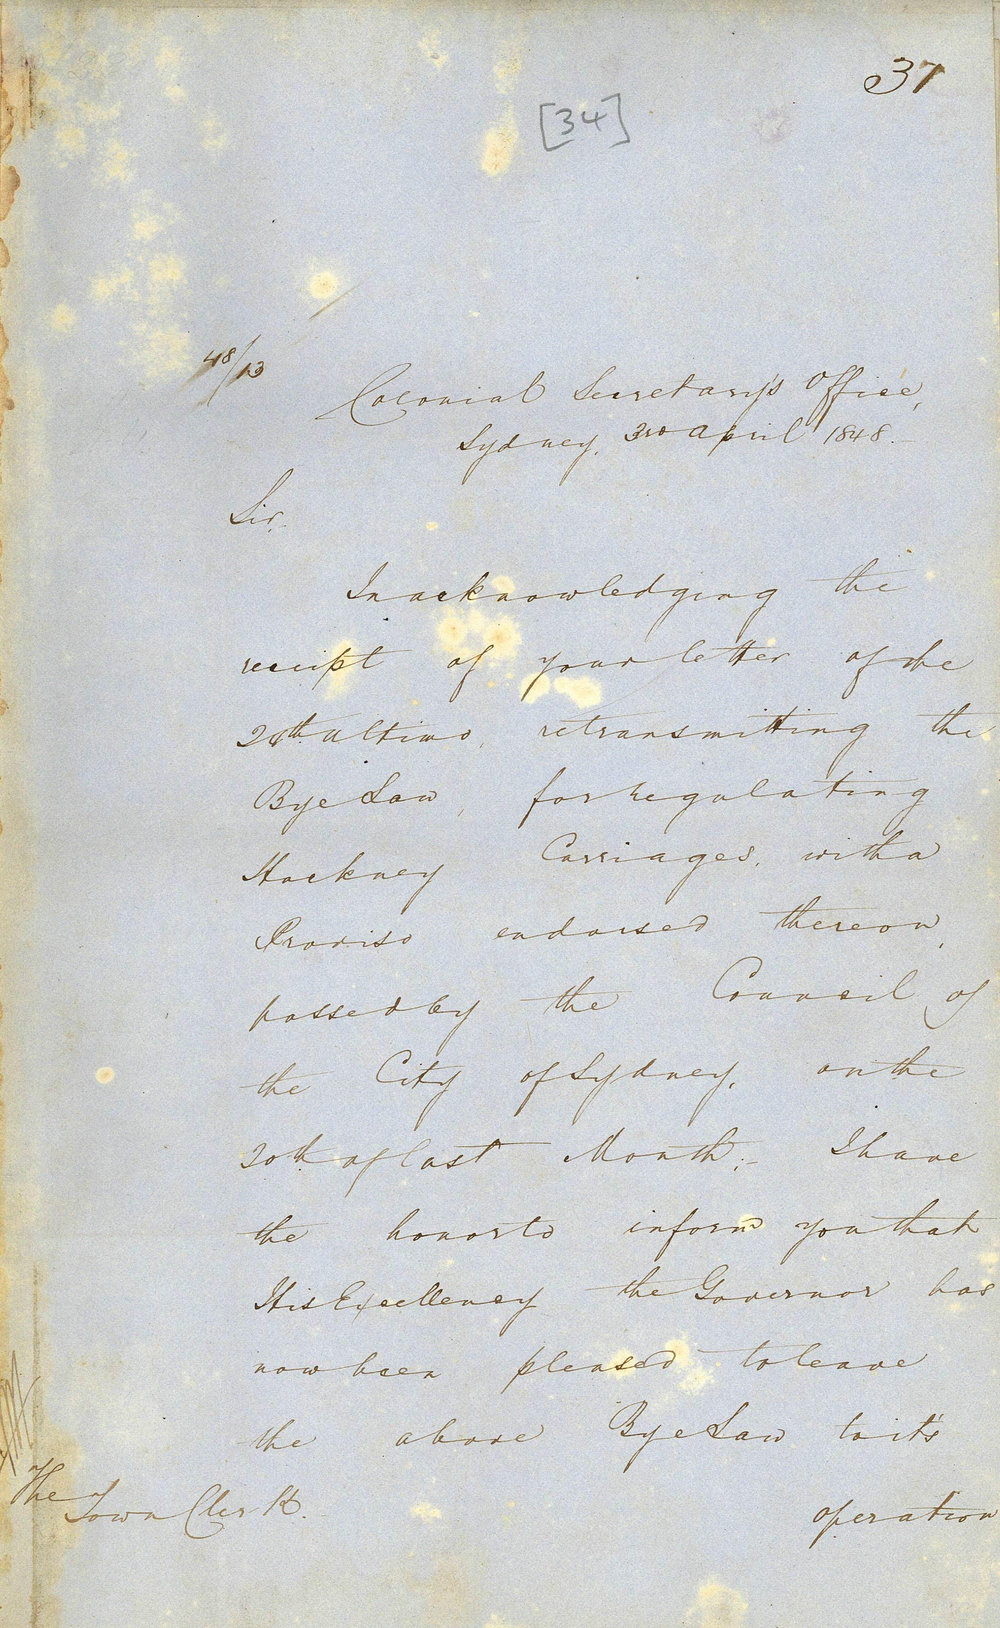 37
[34]
48/13
Colonial Secretary's Office,
Sydney, 3rd April 1848.
Sir,
In acknowledging the
receipt of your letter of the
28th ultimo, retransmitting the
Bye Law, for regulating
Hackney Carriages, with a
Proviso endorsed thereon,
passed by the Council of
the City of Sydney, on the
20th of last Month;- I have
the honor to inform you that
His Excellency the Governor has
now been pleased to leave
the above Bye Law to it's
The
Town Clerk.
operation